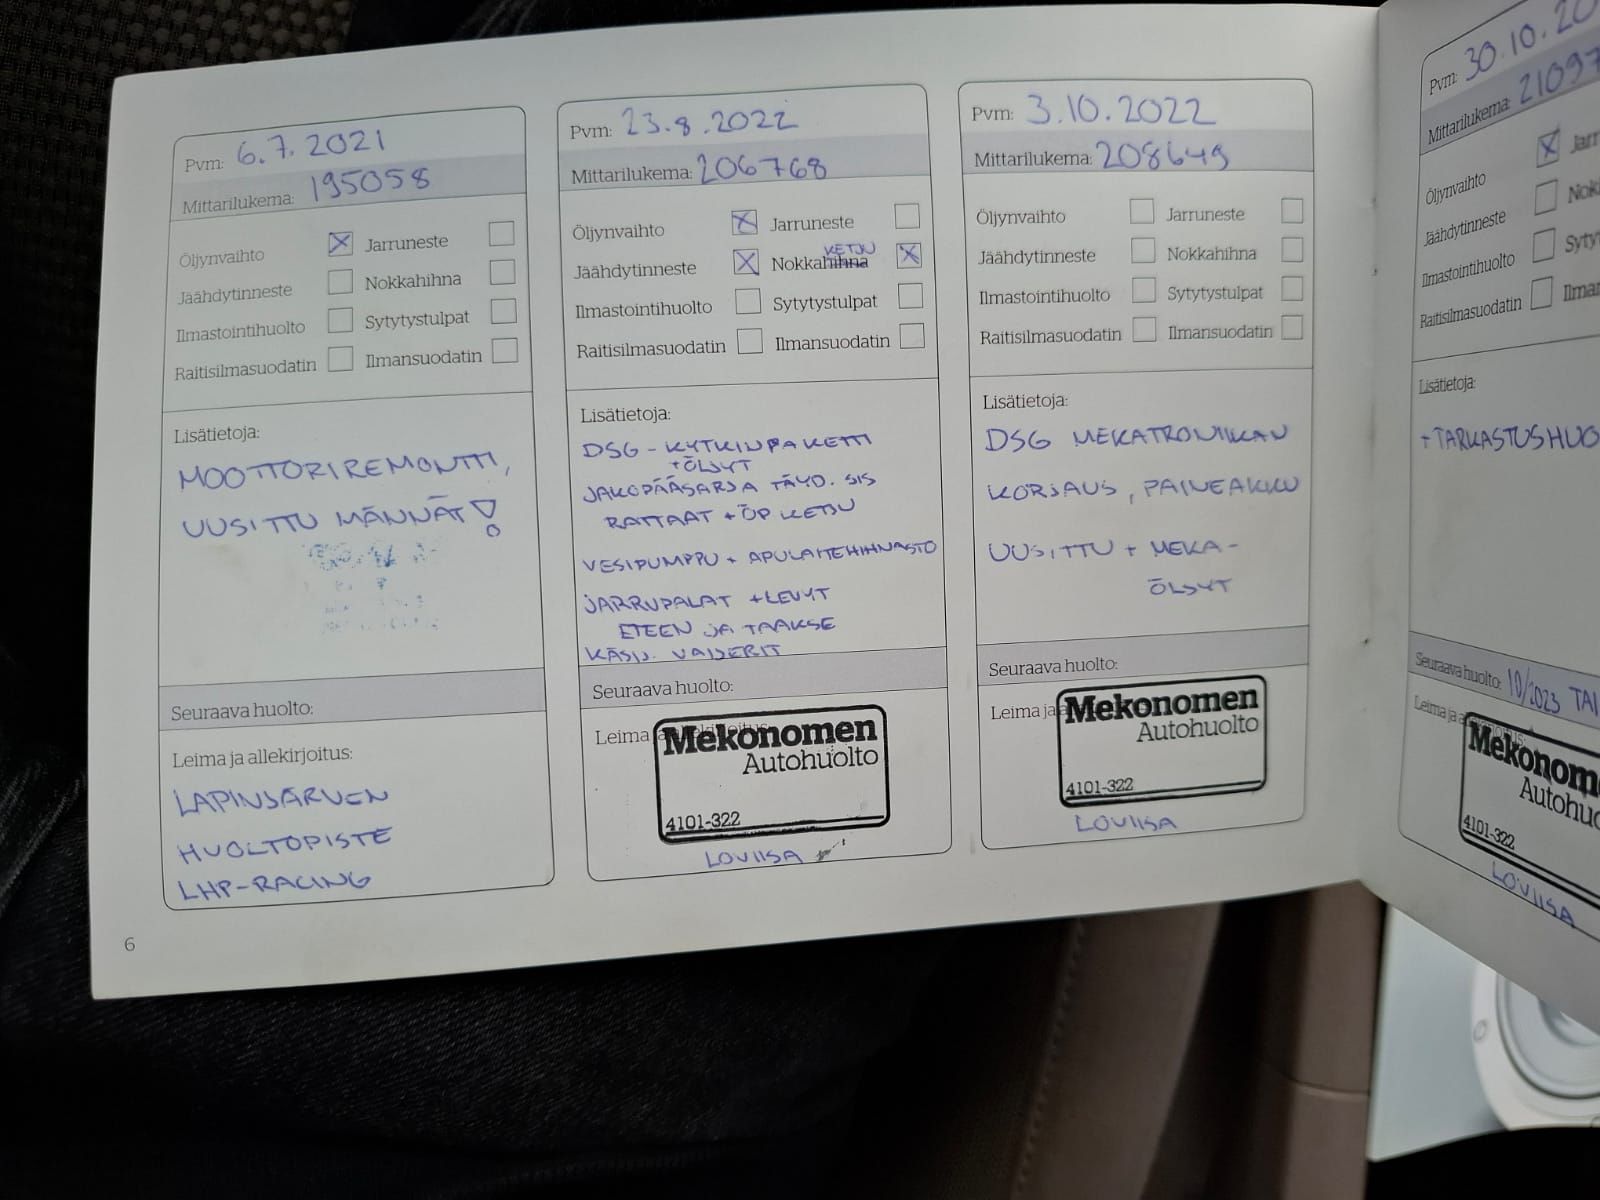 Pvm: 6.7.2021
Mittarilukema: 195058
Öljynvaihto Jarruneste
Jäähdytinneste Nokkahihna
Ilmastointihuolto Sytytystulpat
Raitisilmasuodatin Ilmansuodatin
Lisätietoja:
MOOTTORIREMONTTI,
UUSITTU MÄNNÄT!
Seuraava huolto:
Leima ja allekirjoitus:
LAPINJÄRVEN
HUOLTOPISTE
LHP-RACING
6
Pvm: 23.8.2022
Mittarilukema: 206768
Öljynvaihto Jarruneste
KETJU
Jäähdytinneste Nokkahihna
Ilmastointihuolto Sytytystulpat
Raitisilmasuodatin Ilmansuodatin
Lisätietoja:
DSG-KYTKINPAKETTI
+ÖLJYT
JAKOPÄÄSARJA TÄYD. SIS
RATTAAT + ÖP KETJU
VESIPUMPPU + APULAITEHIHNASTO
JARRUPALAT + LEVYT
ETEEN JA TAAKSE
KÄSIJ. VAIJERIT
Seuraava huolto:
Leima
Mekonomen
Autohuolto
4101-322
LOVIISA
Pvm: 3.10.2022
Mittarilukema: 208649
Öljynvaihto Jarruneste
Jäähdytinneste Nokkahihna
Ilmastointihuolto Sytytystulpat
Raitisilmasuodatin Ilmansuodatin
Lisätietoja:
DSG MEKATRONIIKAN
KORJAUS, PAINEAKKU
UUSITTU + MEKA-
ÖLJYT
Seuraava huolto:
Leima ja
Mekonomen
Autohuolto
4101-322
LOVIISA
Pvm: 30.10.20
Mittarilukema: 21097
Öljynvaihto Jarr
Jäähdytinneste Nokk
Ilmastointihuolto Syty
Raitisilmasuodatin Ilman
Lisätietoja:
+TARKASTUSHUO
Seuraava huolto: 10/2023 TAI
Leima ja a
Mekonom
Autohuo
4101-322
LOVIISA